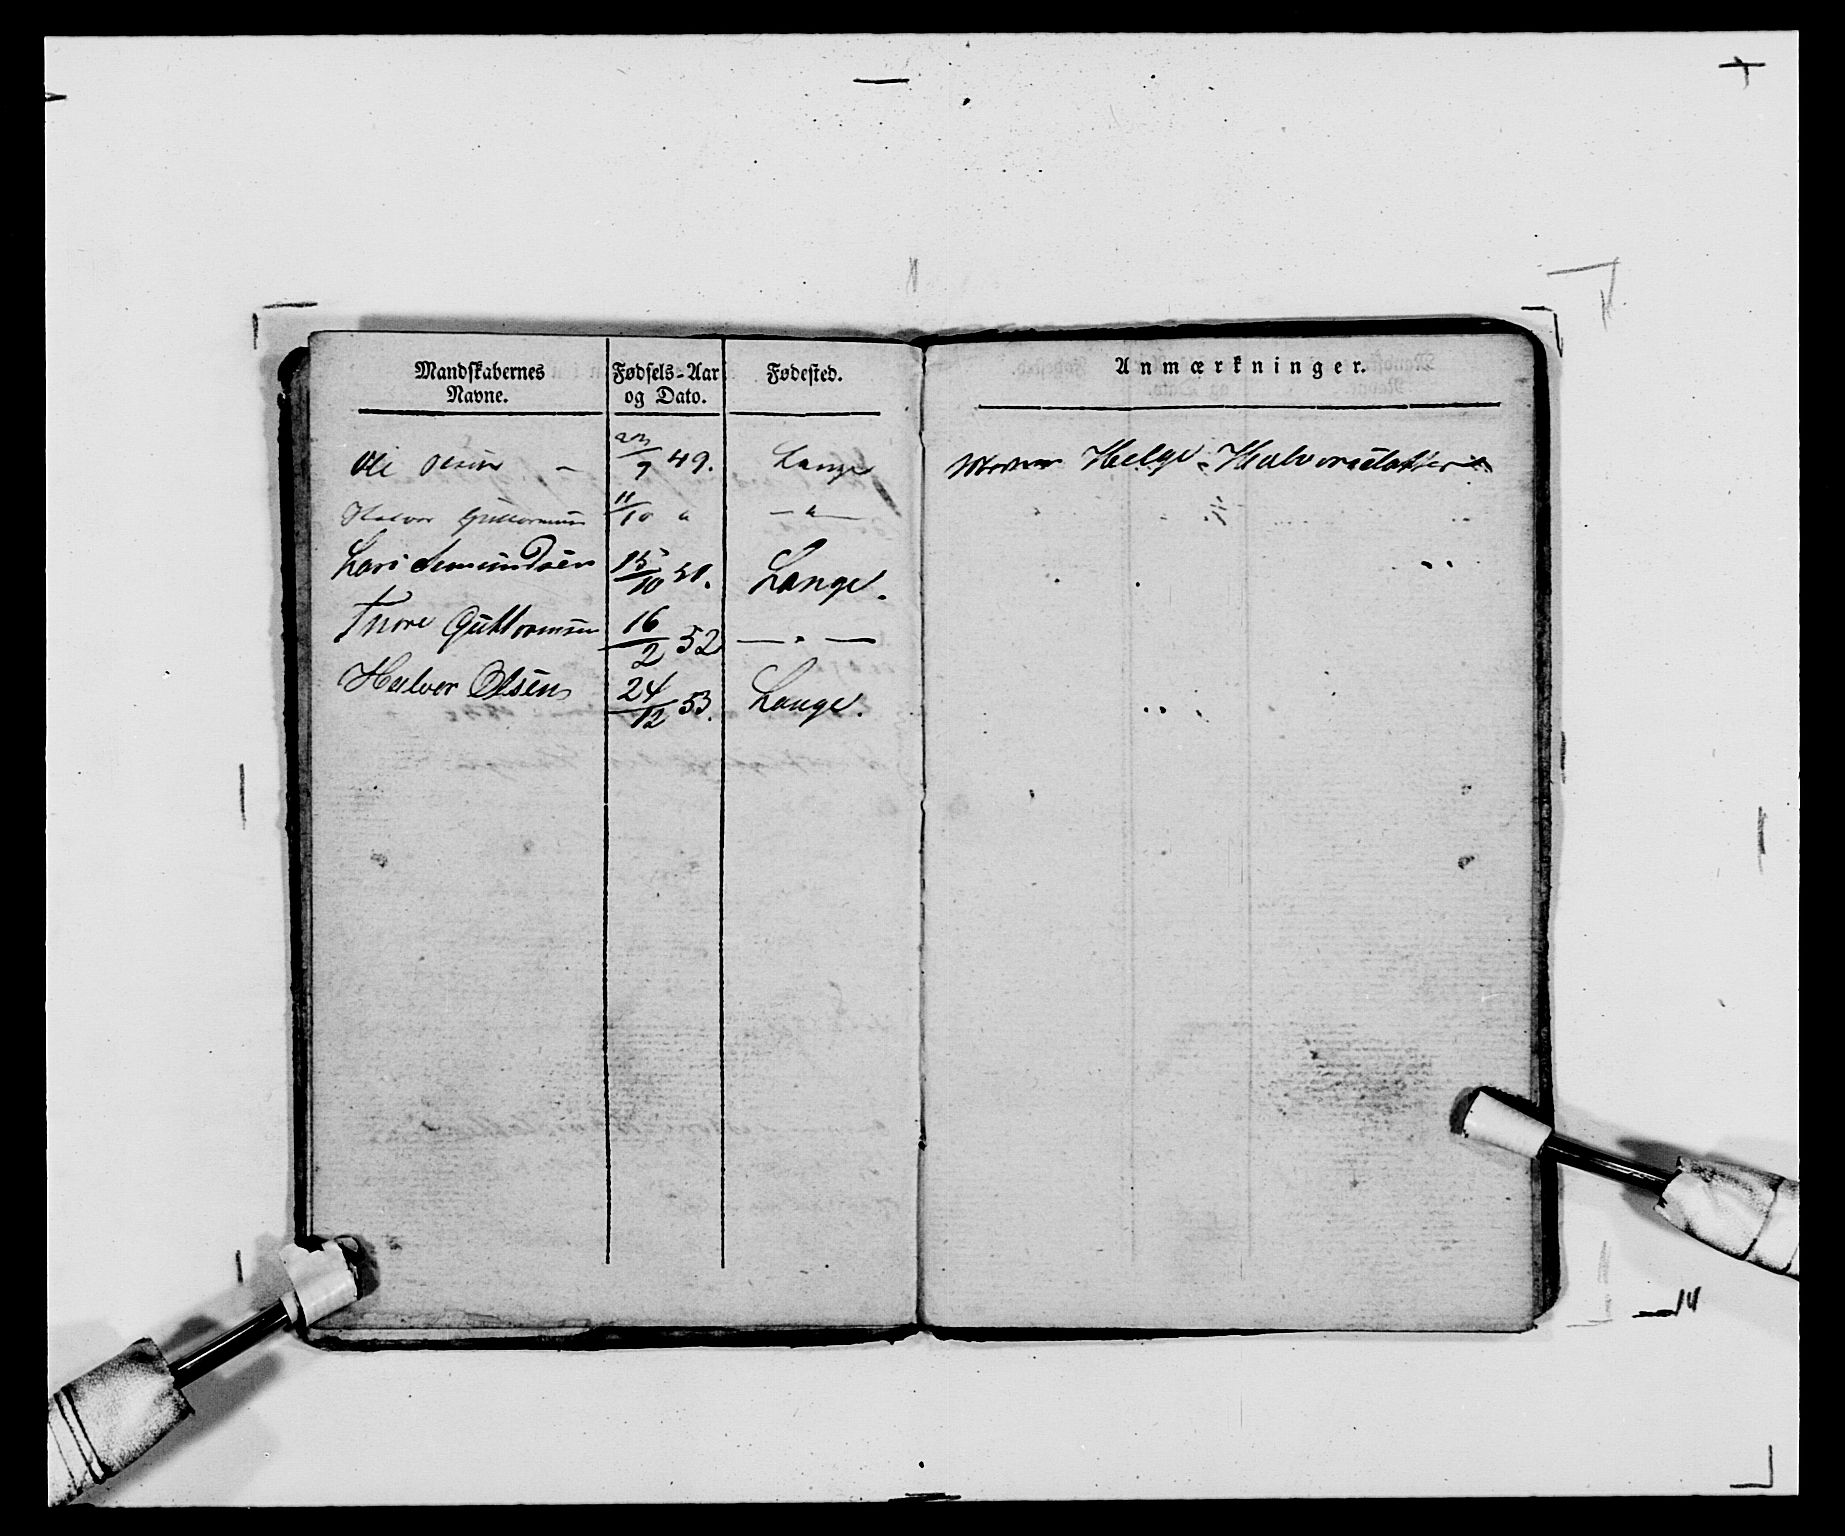 Mandskabernes Navne. Fødsels-Aar og Dato. Fødested. Anmærkninger.
Ole Olsen - 23/7 49. Lange Moder Helge Halvorsdatter
Halvor Guttormsen 11/10 " - " -
Lars Amundsen 15/10 51. Lange.
Thore Guttormsen 16/2 52 - " -
Halvor Olsen 24/12 53. Lange.
14